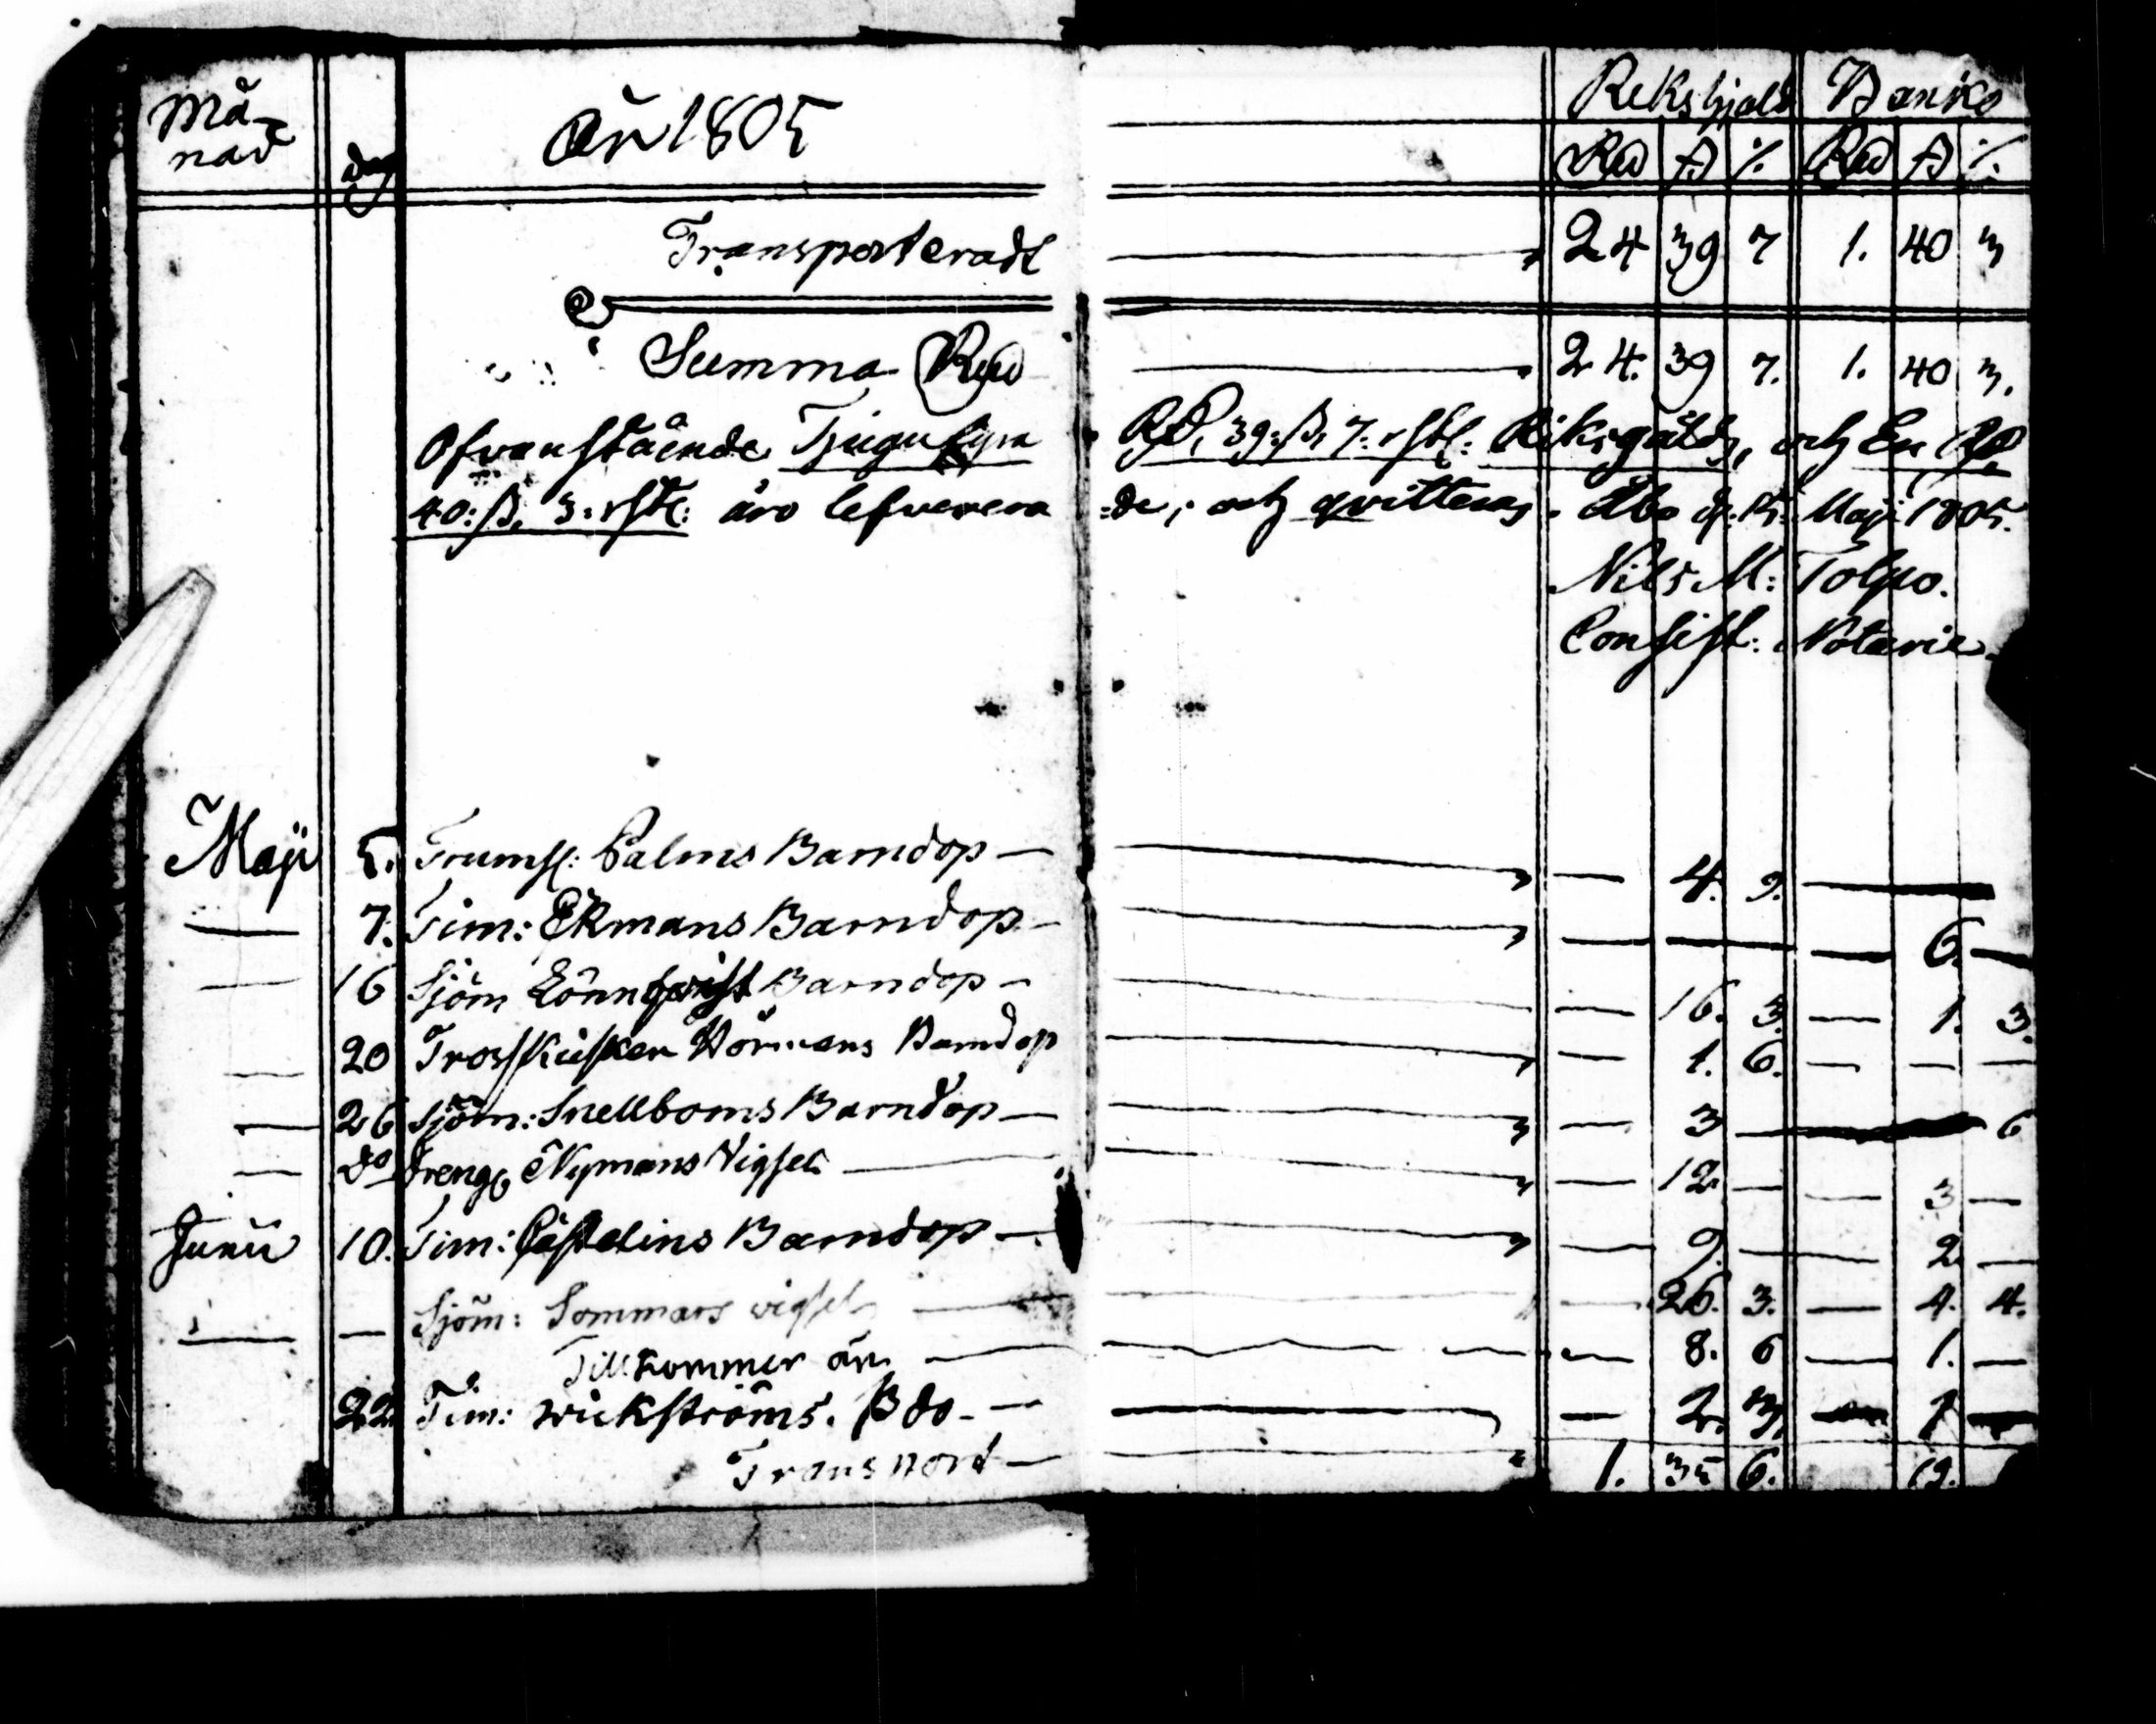 Må- dag År 1805 Reksgjald Banko
nad Rd ß % Rd ß %
Transporteradt 24 39 7 1. 40 3
Summa Rd 24. 39 7. 1. 40 3.
Ofvanstående Tjugufyra Rd, 39: ß, 7. rst: Riksgäld, och En Rd
40: ß, 3: rst: äro lefverera =de, och qvitteras. Åbo d: 15: Maji 1805.
Nils M: Tolpo.
Consist: Notarie.
Maji 5. Trumsl: Palms Barndop — — 4. 9. —
— 7. Tim: Ekmans Barndop — — — — 6. —
— 16 Sjöm Lönnqvist Barndop — — 16. 3. — 1. 3.
— 20 Trosskusken Hörmans Barndop — 1. 6. — — —
— 26 Sjöm: Snellboms Barndop — — 3 — — 6
— do Dreng Nymans Vigsel — — 12 — — 3 —
Junii 10. Tim: Barndop — — 9. — — 2 —
— — Sjöm: Sommars vigsel — — 26. 3. — 4. 4.
Tillkommer än — — 8. 6 — 1. —
22. Tim: wickströms. B do — — 2. 3. — 1 —
Transport — 1. 35 6. 19.